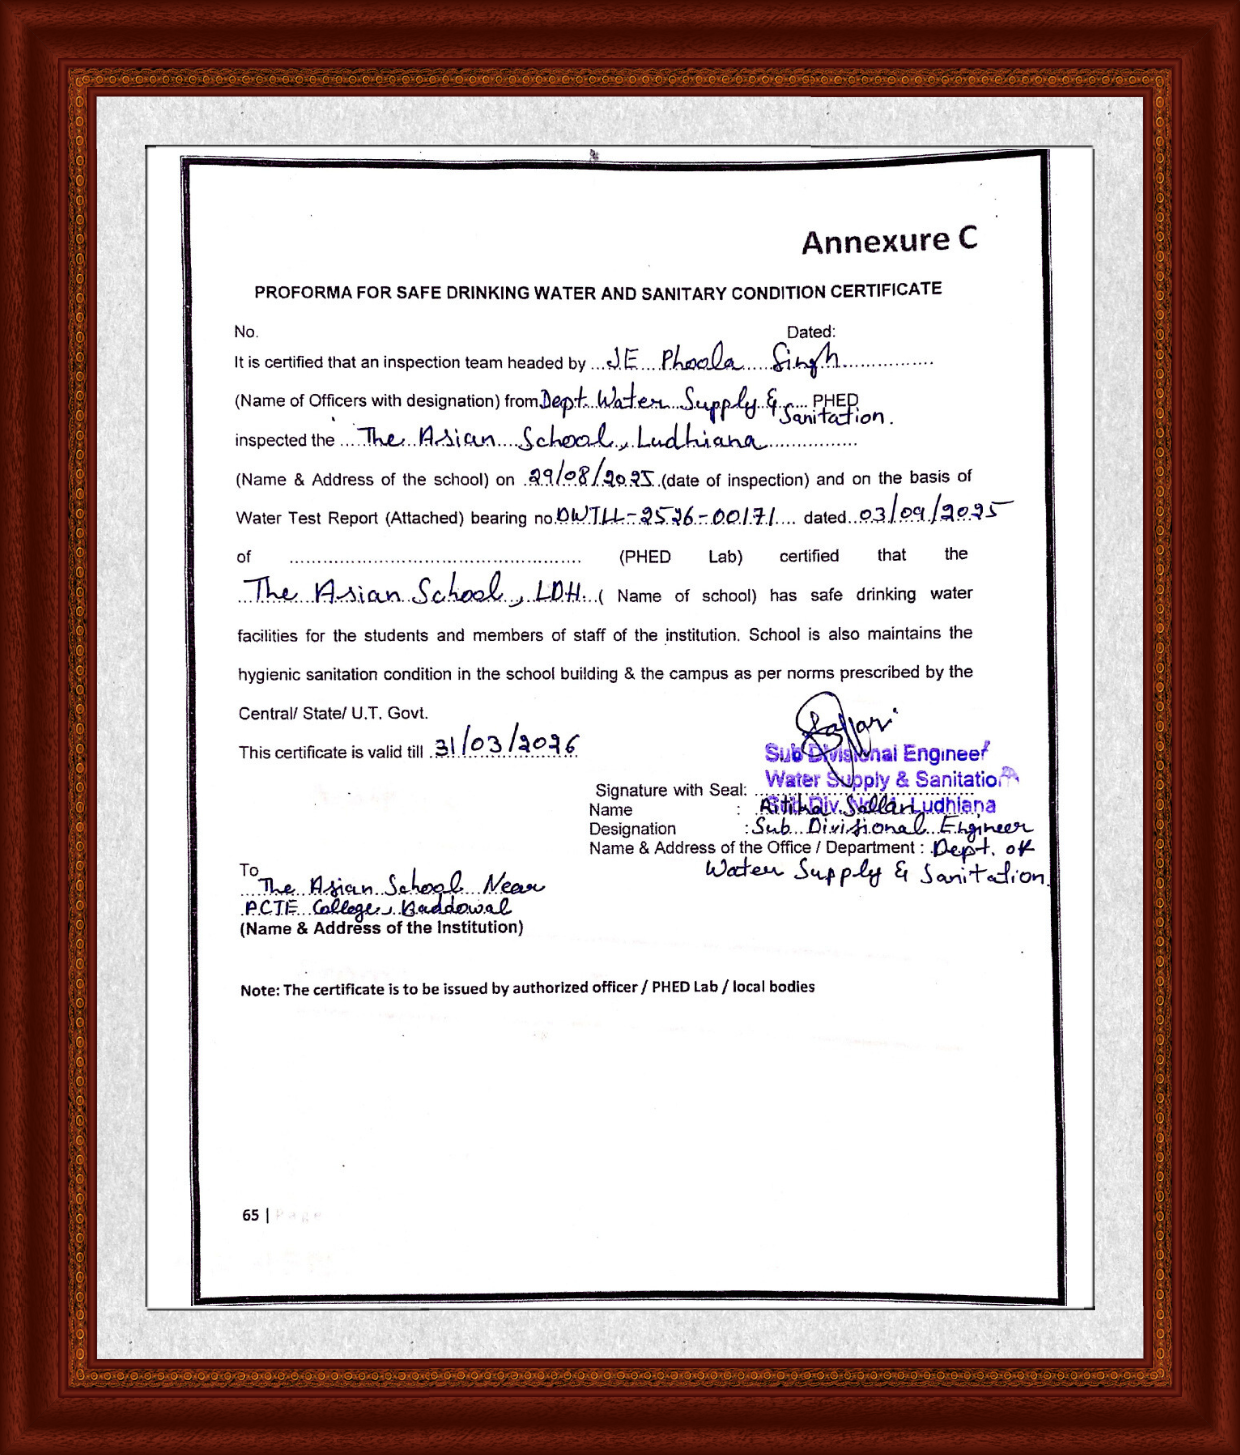 Annexure C
PROFORMA FOR SAFE DRINKING WATER AND SANITARY CONDITION CERTIFICATE
No. Dated:
It is certified that an inspection team headed by ...JE Phoola Singh................
(Name of Officers with designation) from Dept. Water Supply & .... PHED
Sanitation.
inspected the ....The Asian School, Ludhiana................
(Name & Address of the school) on .29/08/2025.(date of inspection) and on the basis of
Water Test Report (Attached) bearing no.DWTLL-2526-00171.... dated..03/09/2025
of .................................................... (PHED Lab) certified that the
..The Asian School, LDH...( Name of school) has safe drinking water
facilities for the students and members of staff of the institution. School is also maintains the
hygienic sanitation condition in the school building & the campus as per norms prescribed by the
Central/ State/ U.T. Govt.
This certificate is valid till .31/03/2026
Sub Divisional Engineer
Water Supply & Sanitation
Signature with Seal: ........................................
Ludhiana
Name :
Designation :Sub Divisional Engineer
Name & Address of the Office / Department : Dept. of
Water Supply & Sanitation.
To
The Asian School Near
PCTE College, Baddowal
(Name & Address of the Institution)
Note: The certificate is to be issued by authorized officer / PHED Lab / local bodies
65 | Page